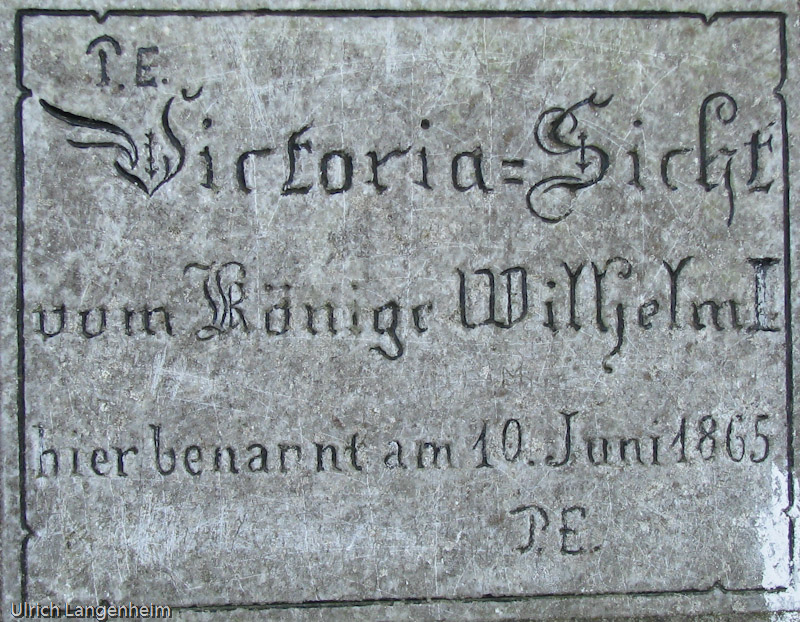 P.E.
Victoria=Sicht
vom Könige Wilhelm I
hier benannt am 10. Juni 1865
P.E.
Ulrich Langenheim